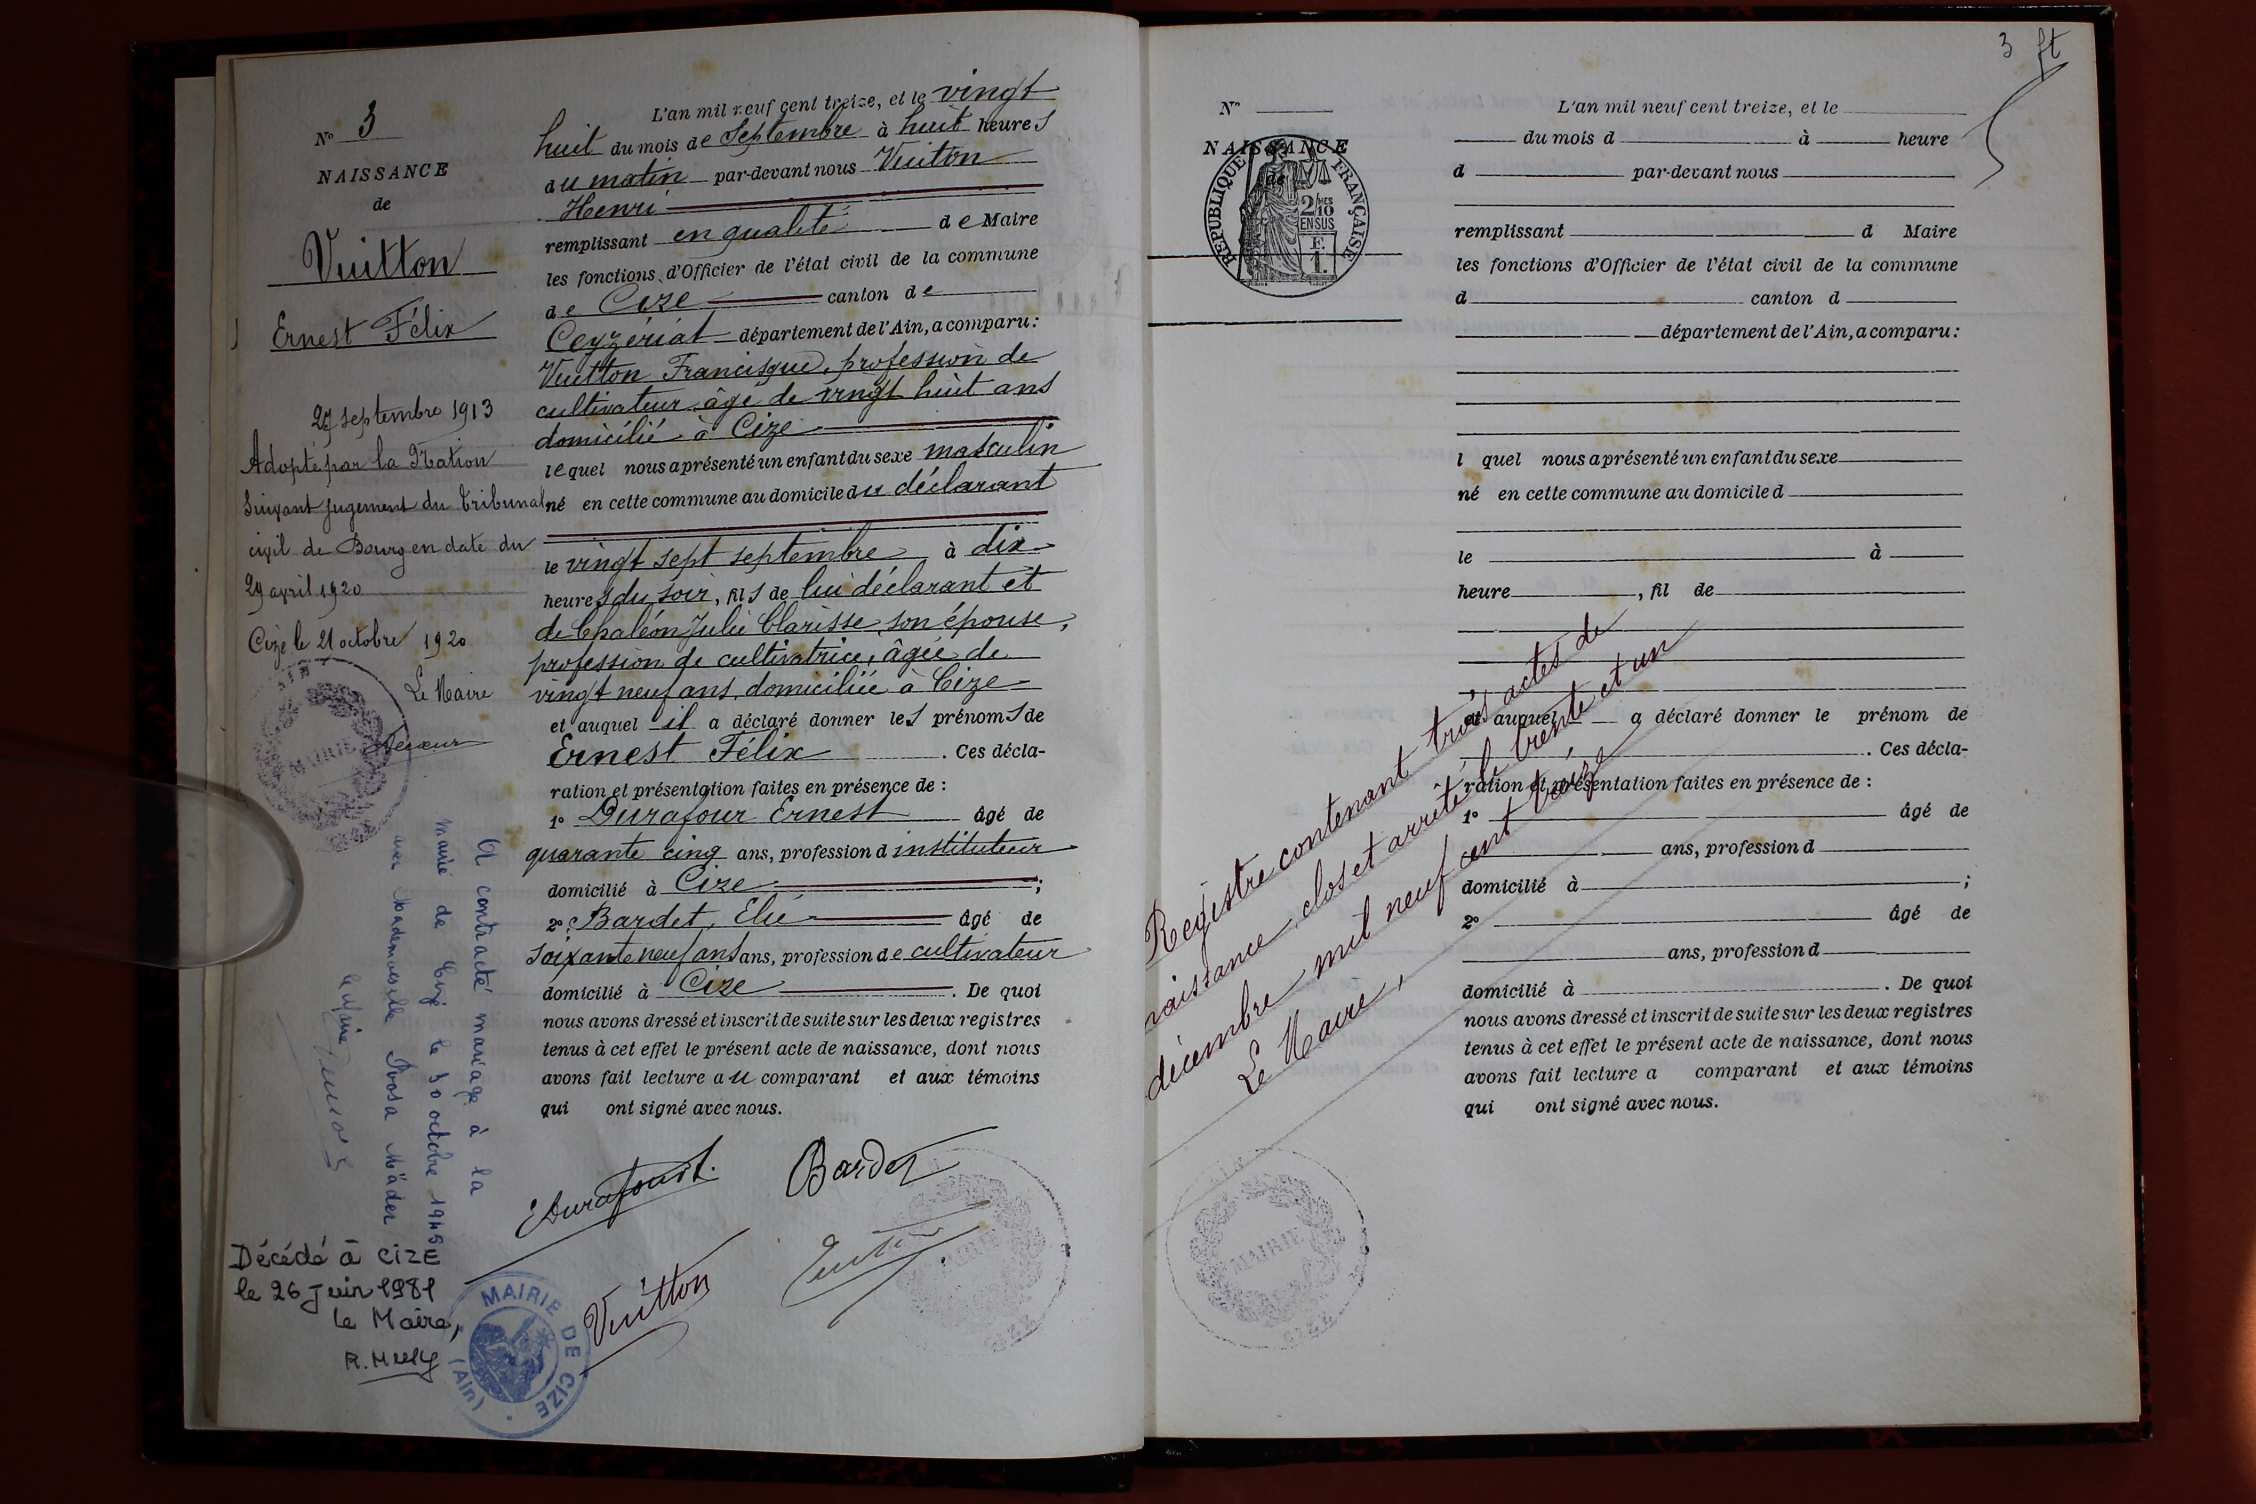 N° 3
NAISSANCE
de
Vuitton
Ernest Félix
27 septembre 1913
Adopté par la Nation
Suivant jugement du tribunal
civil de Bourg en date du
29 avril 1920
Cize le 21 octobre 1920
Le Maire
AIN
MAIRIE
A contracté mariage à la
mairie de Cize le 30 octobre 1945
avec Mademoiselle Rosa Mäder
le Maire
Décédé à CIZE
le 26 Juin 1981
le Maire,
MAIRIE DE CIZE
(Ain)
L'an mil neuf cent treize, et le vingt
huit du mois de Septembre à huit heures
du matin par-devant nous Vuitton
Henri
remplissant en qualité de Maire
les fonctions d'Officier de l'état civil de la commune
de Cize canton de
Ceyzériat département de l'Ain, a comparu :
Vuitton Francisque, profession de
cultivateur âgé de vingt huit ans
domicilié à Cize
lequel nous a présenté un enfant du sexe masculin
né en cette commune au domicile du déclarant
le vingt sept septembre à dix
heures du soir, fils de lui déclarant et
de Chaléon Julie Clarisse, son épouse,
profession de cultivatrice, âgée de
vingt neuf ans, domiciliée à Cize
et auquel il a déclaré donner les prénoms de
Ernest Félix . Ces décla-
ration et présentation faites en présence de :
1° Durafour Ernest âgé de
quarante cinq ans, profession d instituteur
domicilié à Cize ;
2° Bardet, Elie âgé de
soixante neuf ans ans, profession de cultivateur
domicilié à Cize . De quoi
nous avons dressé et inscrit de suite sur les deux registres
tenus à cet effet le présent acte de naissance, dont nous
avons fait lecture au comparant et aux témoins
qui ont signé avec nous.
Durafour
Bardet
Vuitton
Vuitton
MAIRIE
CIZE
3 ft
N°
NAISSANCE
de
RÉPUBLIQUE FRANÇAISE
2/10 MES
EN SUS
F.
1.
L'an mil neuf cent treize, et le
du mois d à heure
d par-devant nous
remplissant d Maire
les fonctions d'Officier de l'état civil de la commune
d canton d
département de l'Ain, a comparu :
l quel nous a présenté un enfant du sexe
né en cette commune au domicile d
le à
heure , fil de
et auquel a déclaré donner le prénom de
. Ces décla-
ration et présentation faites en présence de :
1° âgé de
ans, profession d
domicilié à ;
2° âgé de
ans, profession d
domicilié à . De quoi
nous avons dressé et inscrit de suite sur les deux registres
tenus à cet effet le présent acte de naissance, dont nous
avons fait lecture a comparant et aux témoins
qui ont signé avec nous.
Registre contenant trois actes de
naissance, clos et arrêté le trente et un
décembre mil neuf cent treize
Le Maire,
MAIRIE
CIZE